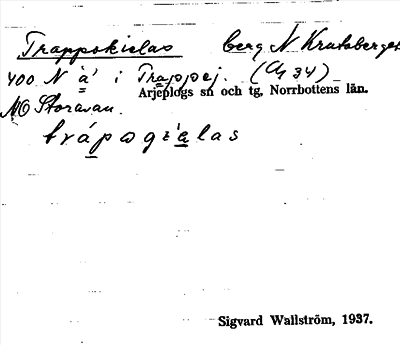 Trappokielas berg N Krutaberget
400 N à' i Trappej. (Ag 34)
Arjeplogs sn och tg, Norrbottens län.
NO Storavan.
trápogiàlas
Sigvard Wallström, 1937.